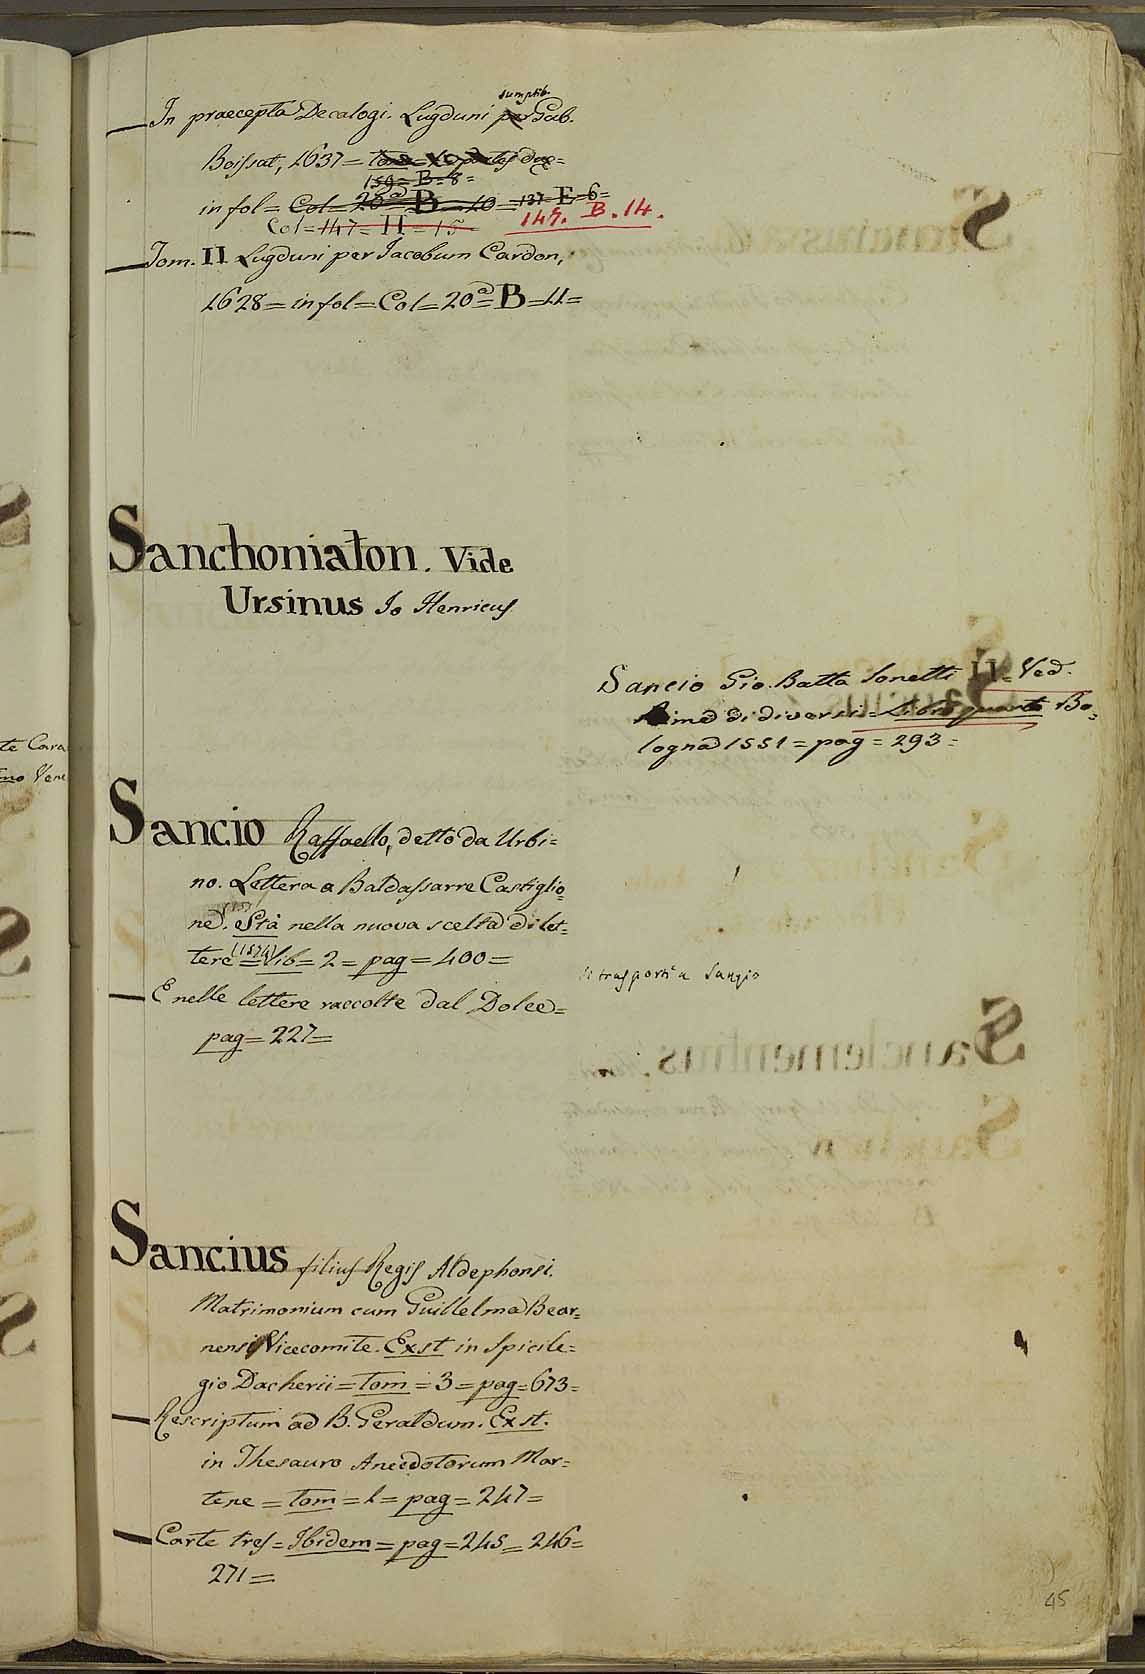 — In praecepta Decalogi. Lugduni sumptib. Gab.
Boissat, 1637 =
159 = B = 8 =
in fol = Col = 20ª B = 10 = 137 = E = 6 =
Col = 147 = H = 15
147. B. 14.
— Tom. II Lugduni per Jacobum Cardon,
1628 = in fol = Col = 20ª = B = 11 =
Sanchoniaton. Vide
Ursinus Jo Henricus
Sancio Gio. Batta Sonetti II = Ved.
Rime di diversi = Libro quarto Bo=
logna 1551 = pag = 293 =
Sancio Raffaello, detto da Urbi=
no. Lettera a Baldassarre Castiglio=
ne. Stà nella nuova scelta di let=
tere (1574) = lib = 2 = pag = 400 =
— E nelle lettere raccolte dal Dolce =
pag = 227 =
si trasporti a Sanzio
Sancius filius Regis Aldephonsi.
Matrimonium cum Guillelma Bear=
nensi Vicecomite. Exst in Spicile=
gio Dacherii = tom = 3 = pag = 673 =
— Rescriptum ad B. Geraldum. Exst.
in Thesauro Anecdotorum Mar=
tene = tom = 1 = pag = 247 =
— Carte tres = Ibidem = pag = 245 = 246 =
271 =
45